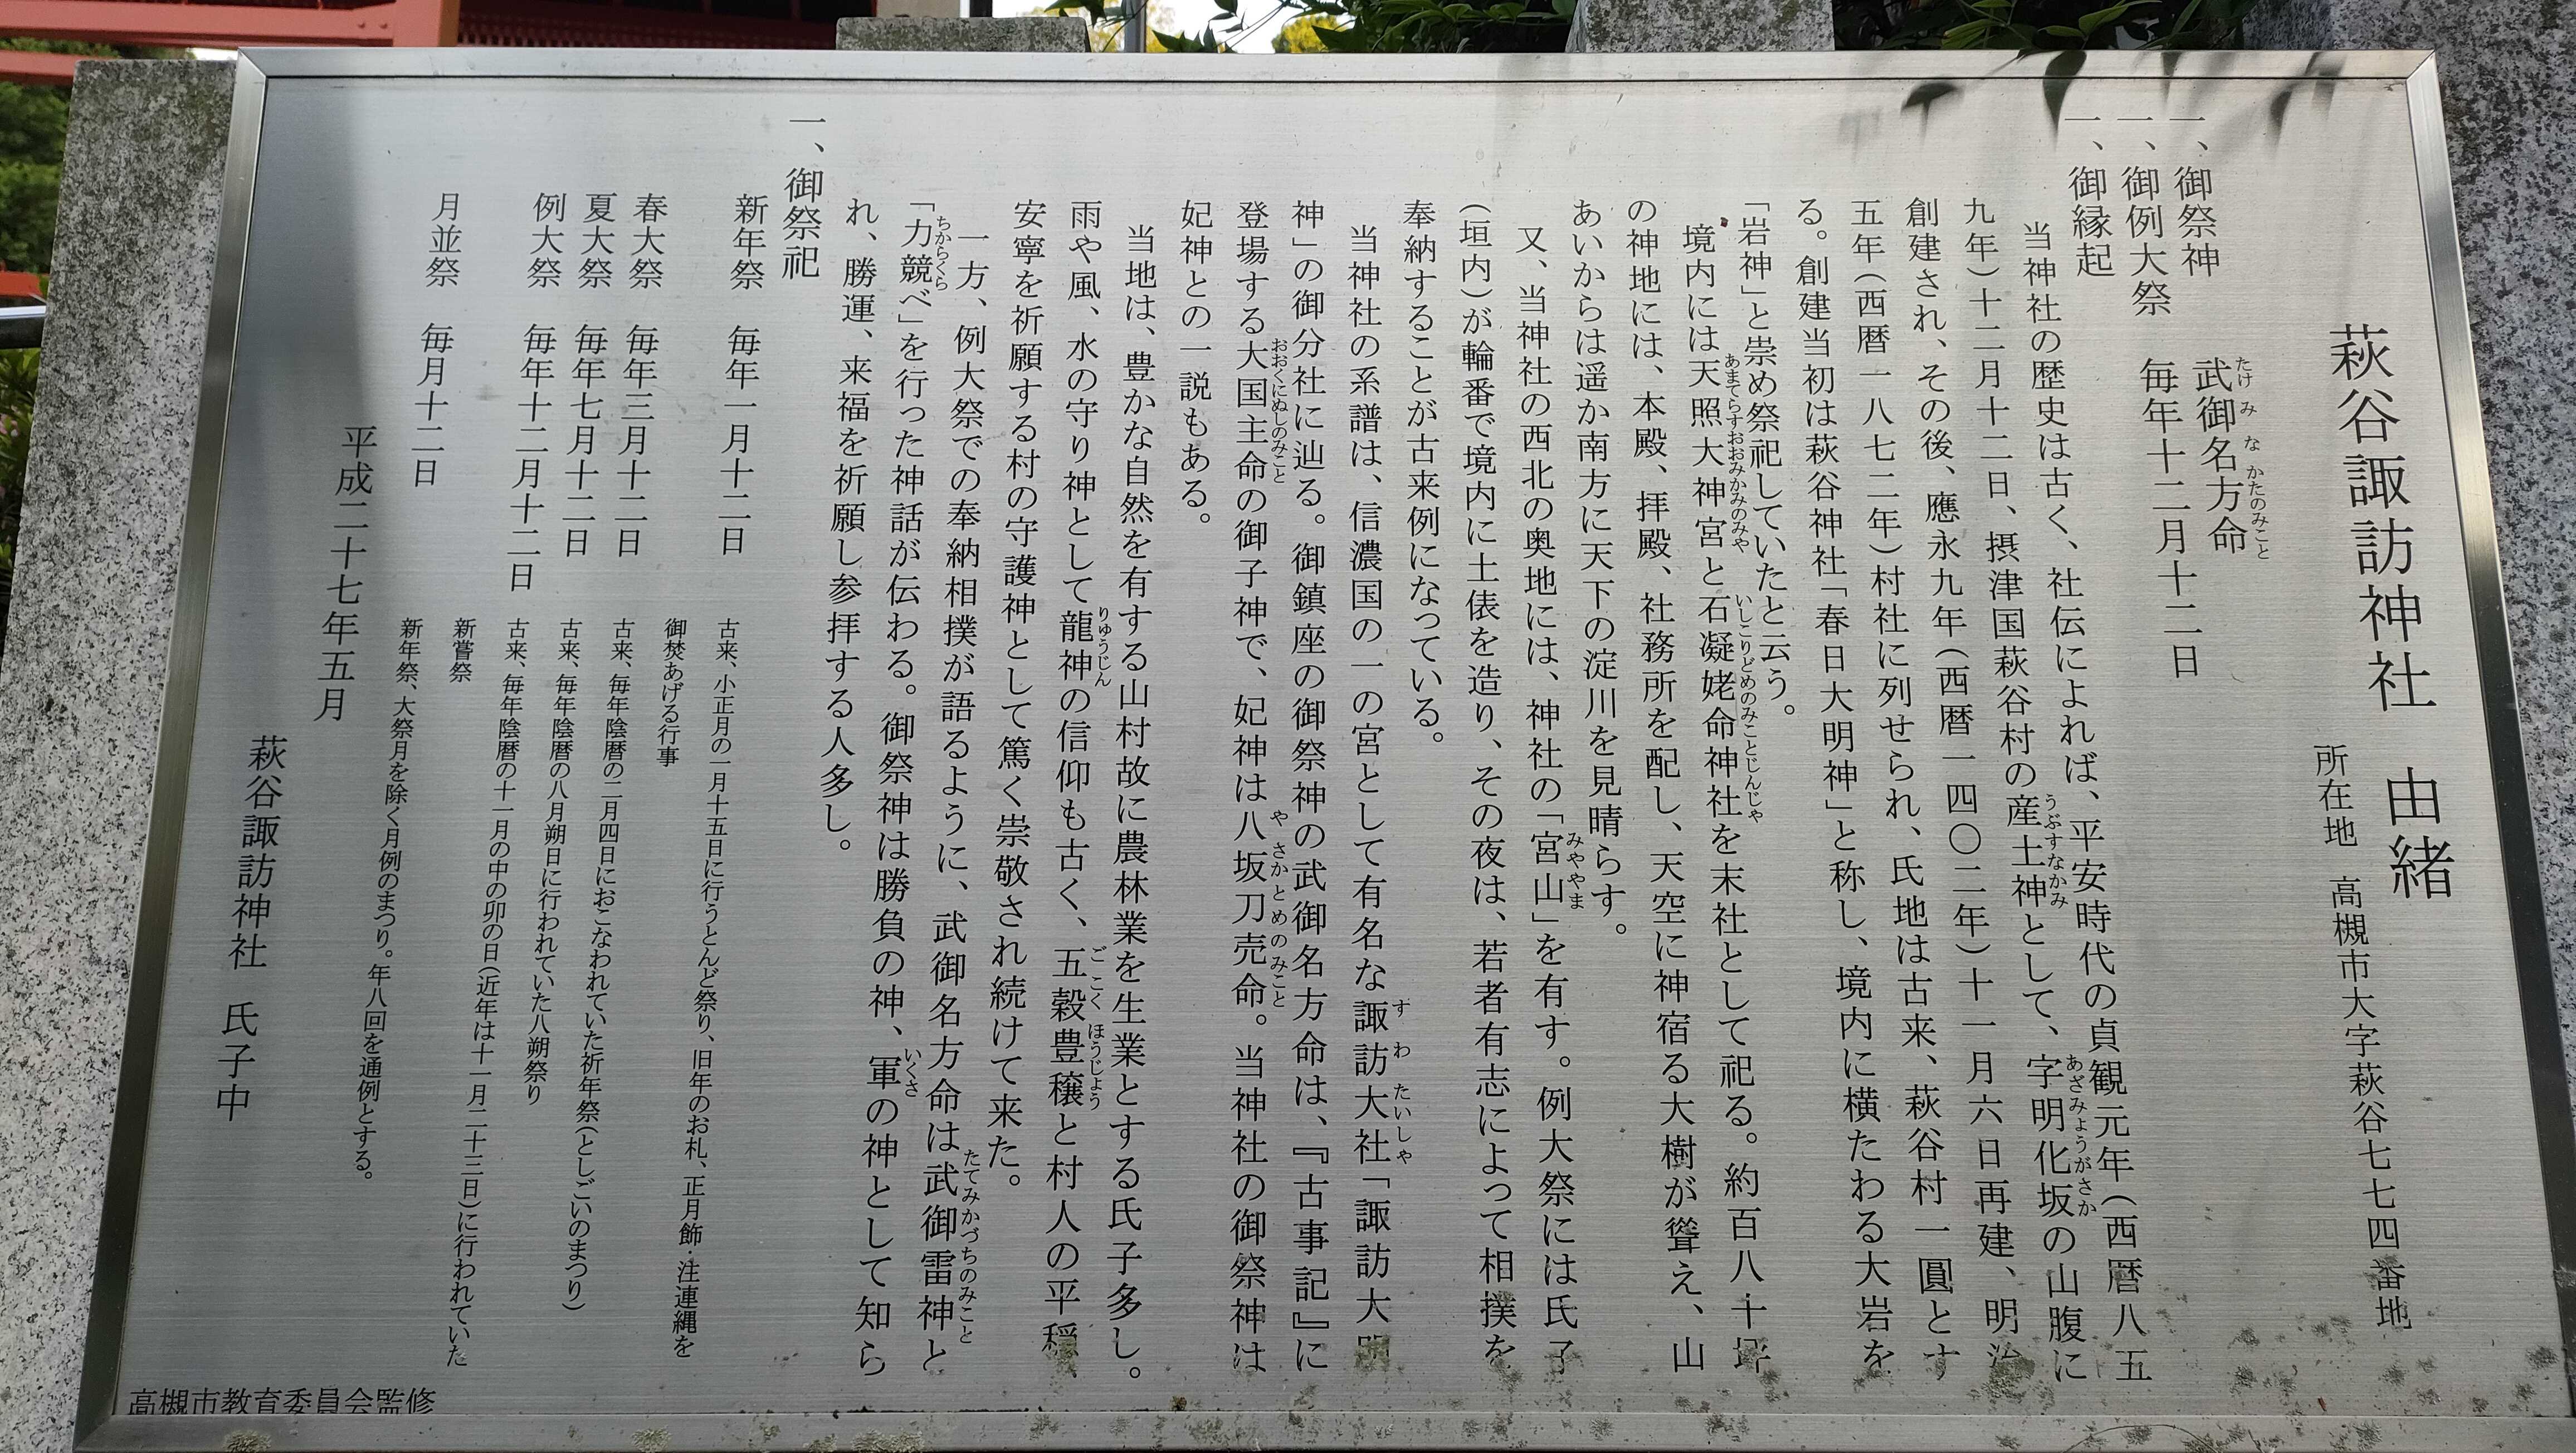 萩谷諏訪神社 由緒
所在地 高槻市大字萩谷七七四番地
一、御祭神 武御名方命
一、御例大祭 毎年十二月十二日
一、御縁起
当神社の歴史は古く、社伝によれば、平安時代の貞観元年(西暦八五
九年)十二月十二日、摂津国萩谷村の産土神として、字明化坂の山腹に
創建され、その後、應永九年(西暦一四〇二年)十一月六日再建、明治
五年(西暦一八七二年)村社に列せられ、氏地は古来、萩谷村一圓とす
る。創建当初は萩谷神社「春日大明神」と称し、境内に横たわる大岩を
「岩神」と崇め祭祀していたと云う。
境内には天照大神宮と石凝姥命神社を末社として祀る。約百八十坪
の神地には、本殿、拝殿、社務所を配し、天空に神宿る大樹が聳え、山
あいからは遥か南方に天下の淀川を見晴らす。
又、当神社の西北の奥地には、神社の「宮山」を有す。例大祭には氏子
(垣内)が輪番で境内に土俵を造り、その夜は、若者有志によって相撲を
奉納することが古来例になっている。
当神社の系譜は、信濃国の一の宮として有名な諏訪大社「諏訪大明
神」の御分社に辿る。御鎮座の御祭神の武御名方命は、『古事記』に
登場する大国主命の御子神で、妃神は八坂刀売命。当神社の御祭神は
妃神との一説もある。
当地は、豊かな自然を有する山村故に農林業を生業とする氏子多し。
雨や風、水の守り神として龍神の信仰も古く、五穀豊穣と村人の平穏、
安寧を祈願する村の守護神として篤く崇敬され続けて来た。
一方、例大祭での奉納相撲が語るように、武御名方命は武御雷神と
「力競べ」を行った神話が伝わる。御祭神は勝負の神、軍の神として知ら
れ、勝運、来福を祈願し参拝する人多し。
一、御祭祀
新年祭 毎年一月十二日 古来、小正月の一月十五日に行うとんど祭り、旧年のお札、正月飾・注連縄を
御焚あげる行事
春大祭 毎年三月十二日 古来、毎年陰暦の二月四日におこなわれていた祈年祭(としごいのまつり)
夏大祭 毎年七月十二日 古来、毎年陰暦の八月朔日に行われていた八朔祭り
例大祭 毎年十二月十二日 古来、毎年陰暦の十一月の中の卯の日(近年は十一月二十三日)に行われていた
新嘗祭
月並祭 毎月十二日 新年祭、大祭月を除く月例のまつり。年八回を通例とする。
平成二十七年五月
萩谷諏訪神社 氏子中
高槻市教育委員会監修